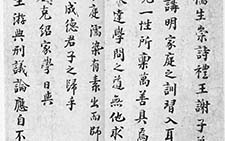 儒生崇詩禮王謝子弟
講明家庭之訓習入耳
充一性所稟萬善具焉
達學問之道無他求
庭濡染有素出而師
成德君子之歸乎
克紹家學日與
生游與刑議論應自不